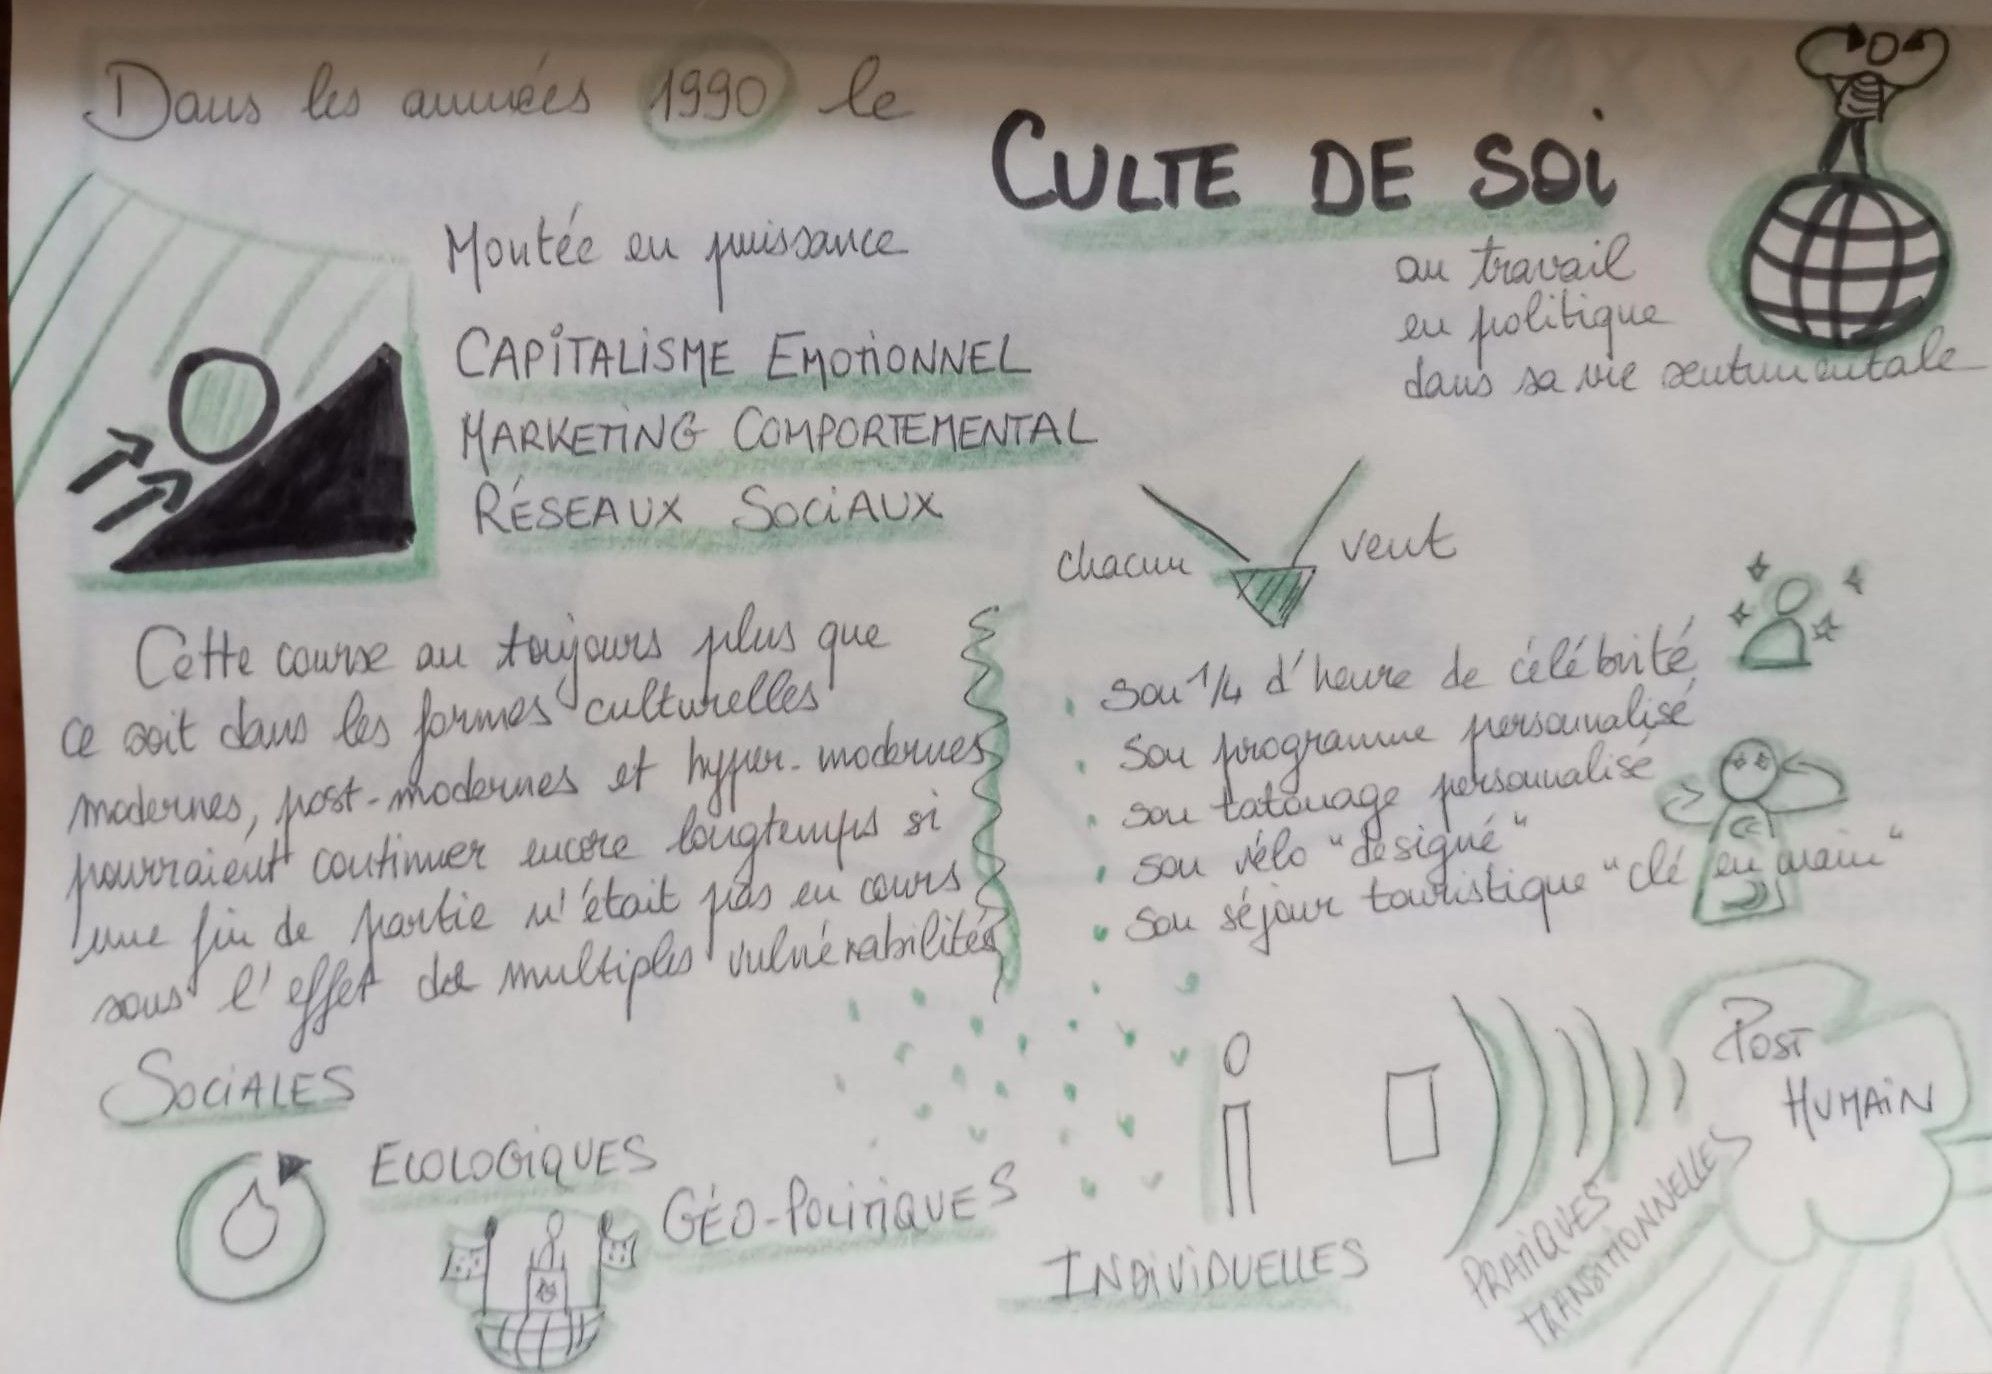 Dans les années 1990 le
CULTE DE SOI
au travail
en politique
dans sa vie sentimentale
Montée en puissance
CAPITALISME EMOTIONNEL
MARKETING COMPORTEMENTAL
RÉSEAUX SOCIAUX
chacun veut
son 1/4 d'heure de célébrité
son programme personnalisé
son tatouage personnalisé
son vélo "designé"
son séjour touristique "clé en main"
Cette course au toujours plus que
ce soit dans les formes culturelles
modernes, post-modernes et hyper-modernes
pourraient continuer encore longtemps si
une fin de partie n'était pas en cours
sous l'effet de multiples vulnérabilités
SOCIALES
ECOLOGIQUES
GÉO-POLITIQUES
INDIVIDUELLES
PRATIQUES
TRANSITIONNELLES
POST
HUMAIN